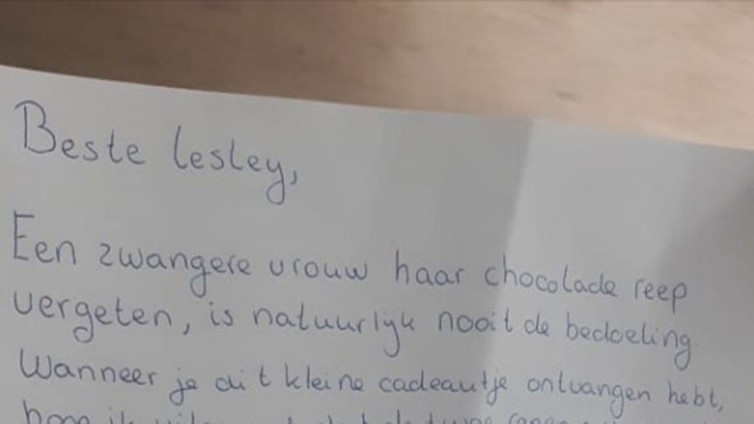 Beste lesley,
Een zwangere vrouw haar chocolade reep
vergeten, is natuurlijk nooit de bedoeling
Wanneer je dit kleine cadeautje ontvangen hebt,
hoop ik